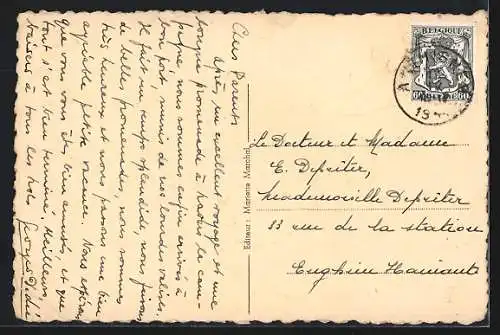 Chers Parents
Après un excellent voyage et une
longue promenade à travers la cam-
pagne, nous sommes enfin arrivés à
bon port, munis de nos lourdes valises.
Il fait un temps splendide, nous faisons
de belles promenades, nous sommes
très heureux et nous passons une bien
agréable petite vacance. Nous espérons
que vous vous êtes bien amusés, et que
tout s'est bien terminé. Meilleurs
baisers à tous les trois.
Editeur : Marianne
BELGIQUE
60
19
Le Docteur et Madame
E. Depreter,
Mademoiselle Depreter
33 rue de la station
Enghien Hainaut